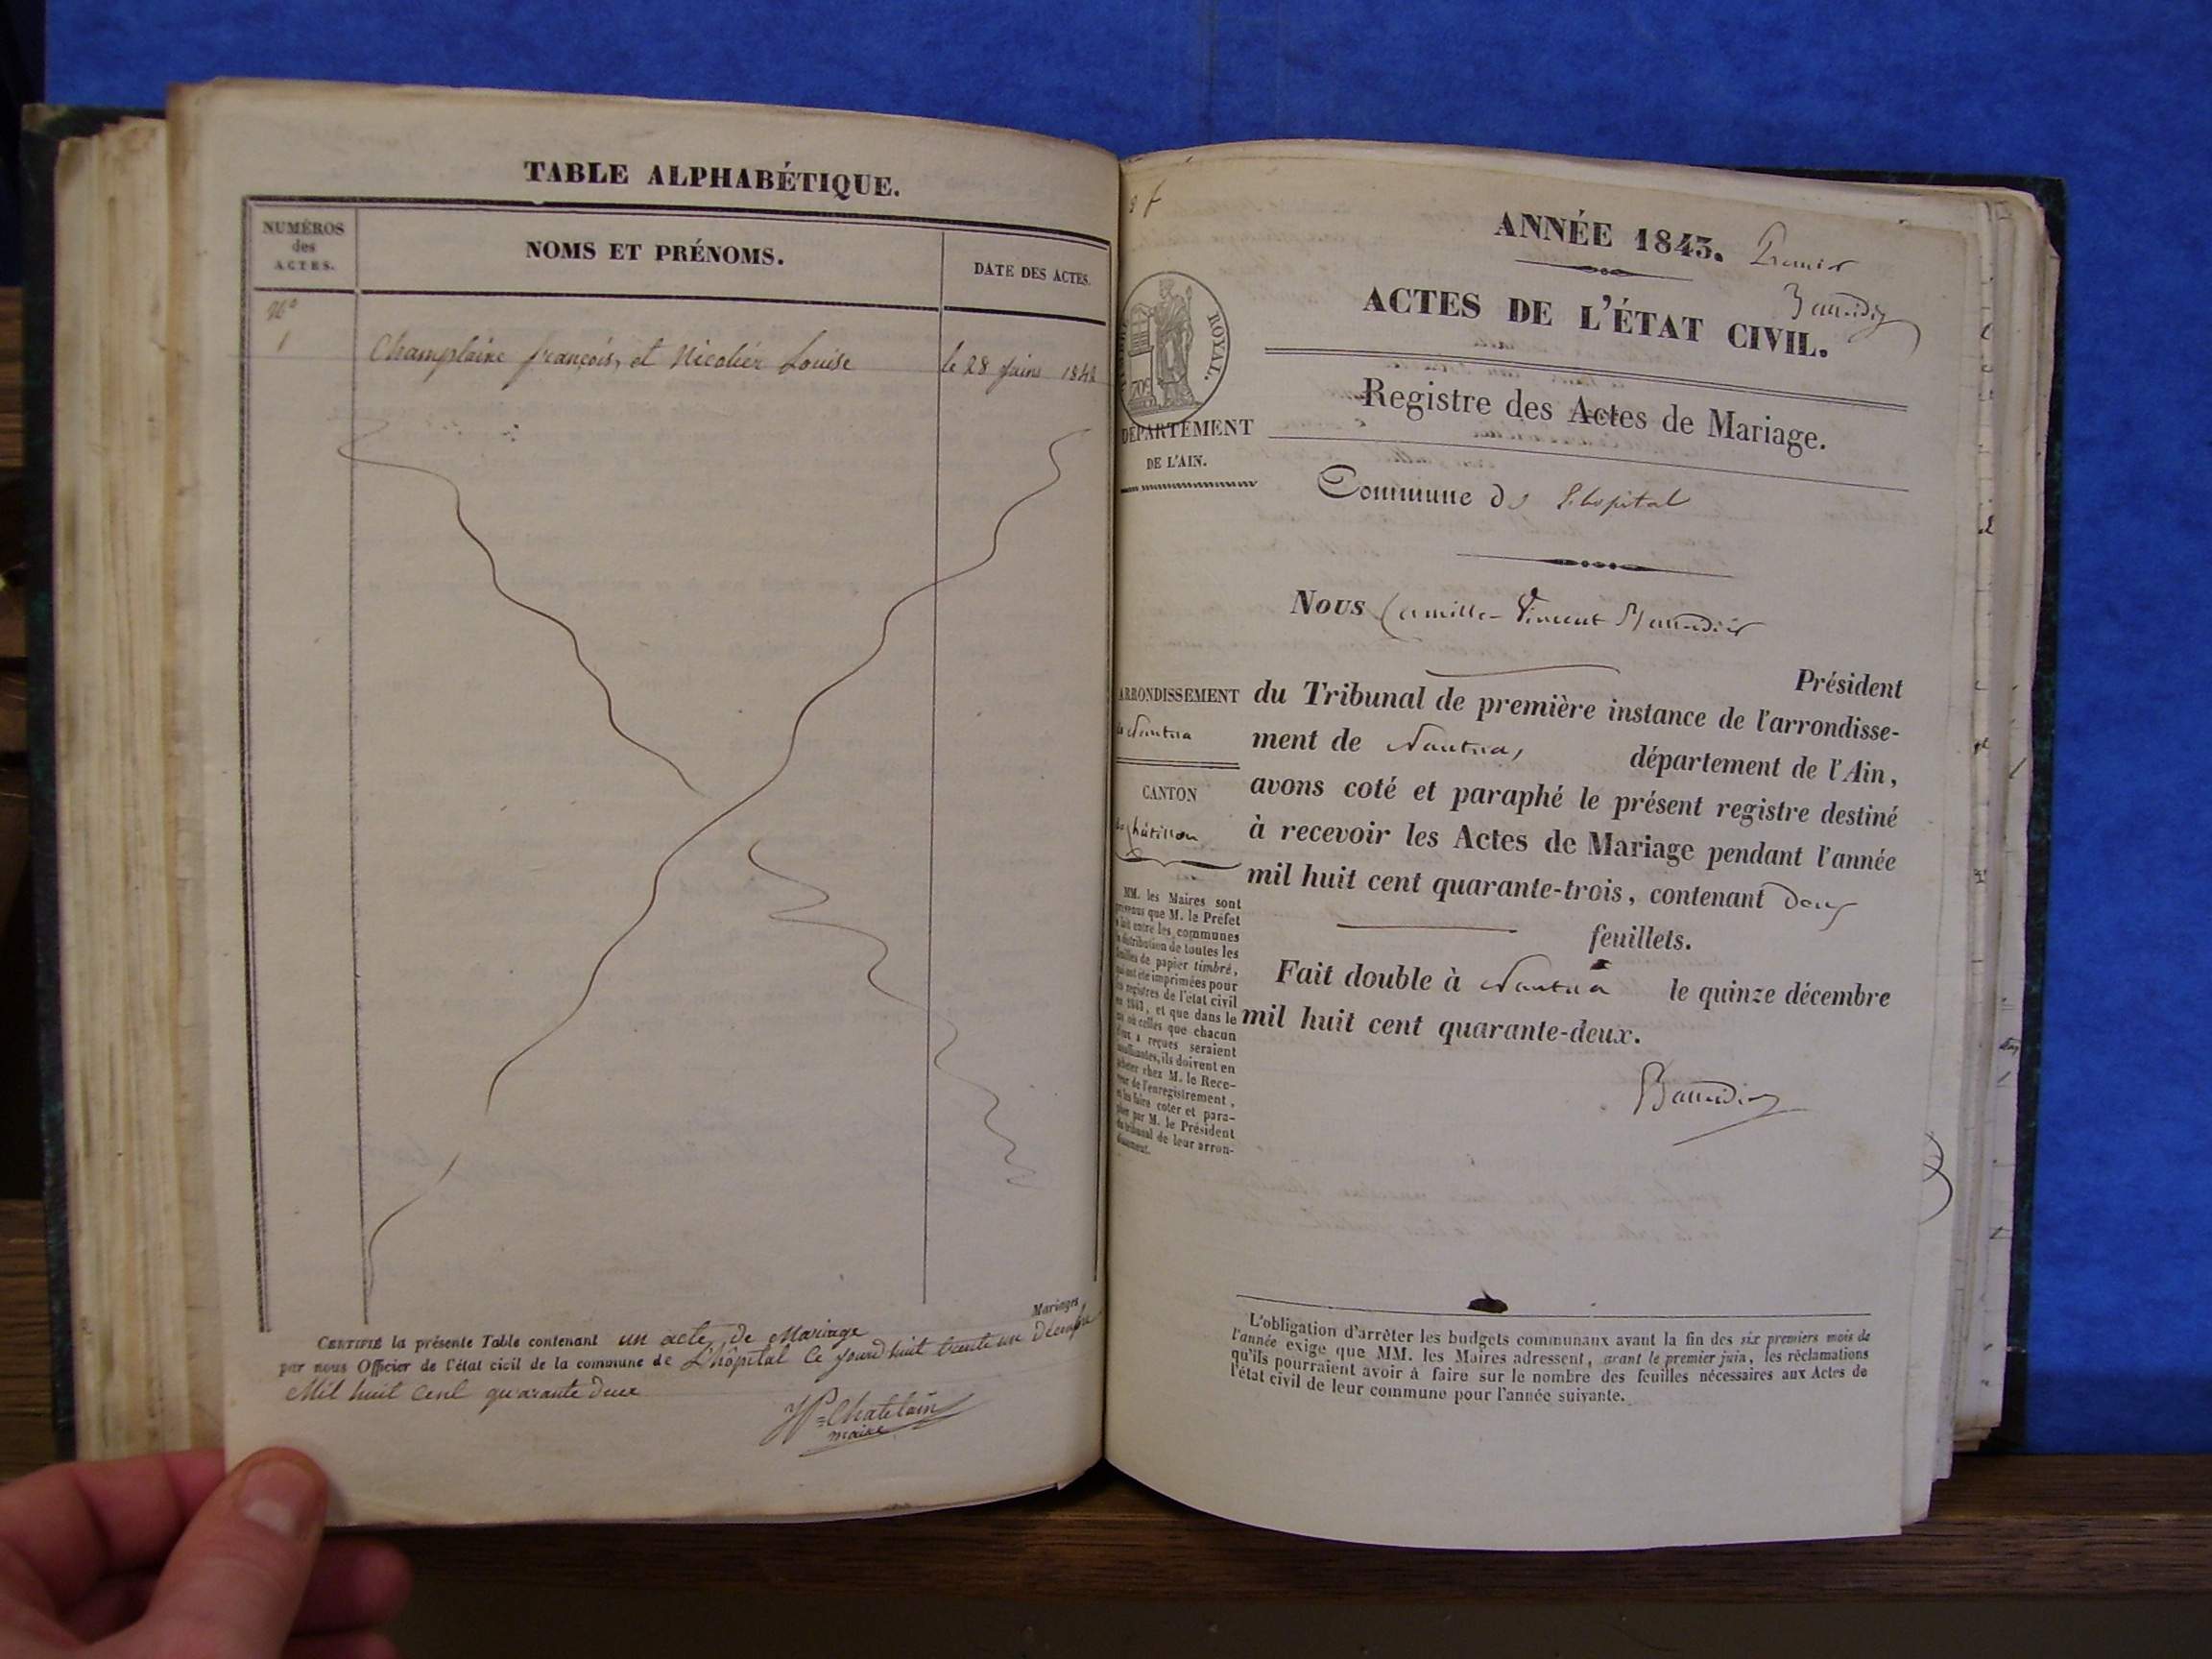 TABLE ALPHABÉTIQUE.
NUMÉROS
des
ACTES.
NOMS ET PRÉNOMS.
DATE DES ACTES.
N°
1 Champlaire françois, et Nicolier Louise le 28 juin 1842
Mariages
CERTIFIÉ la présente Table contenant un acte, de Mariage
par nous Officier de l'état civil de la commune de L'hôpital Ce jourd'huit trente un Décembre
Mil huit Cent quarante Deux
Chatelain
maire
ANNÉE 1843. Premier
ACTES DE L'ÉTAT CIVIL.
ROYAL.
Registre des Actes de Mariage.
DÉPARTEMENT
DE L'AIN.
Commune de L'hopital
Nous Camille Vincent Baudier
Président
ARRONDISSEMENT
de Nantua
CANTON
de Châtillon
du Tribunal de première instance de l'arrondisse-
ment de Nantua, département de l'Ain,
avons coté et paraphé le présent registre destiné
à recevoir les Actes de Mariage pendant l'année
mil huit cent quarante-trois, contenant Deux
feuillets.
Fait double à Nantua le quinze décembre
mil huit cent quarante-deux.
MM. les Maires sont
prévenus que M. le Préfet
a fait entre les communes
la distribution de toutes les
feuilles de papier timbré,
qui ont été imprimées pour
les registres de l'état civil
en 1843, et que dans le
cas où celles que chacun
d'eux a reçues seraient
insuffisantes, ils doivent en
acheter chez M. le Rece-
veur de l'enregistrement,
et les faire coter et para-
pher par M. le Président
du tribunal de leur arron-
dissement.
L'obligation d'arrêter les budgets communaux avant la fin des six premiers mois de
l'année exige que MM. les Maires adressent, avant le premier juin, les réclamations
qu'ils pourraient avoir à faire sur le nombre des feuilles nécessaires aux Actes de
l'état civil de leur commune pour l'année suivante.